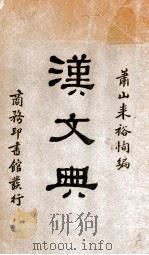 蕭山來裕恂編
漢文典
商務印書館發行
www.toowiki.com